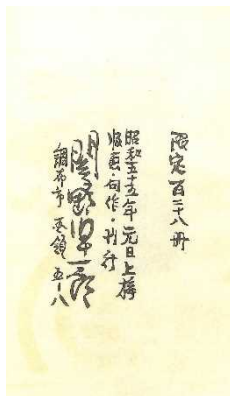 限定百二十八冊
昭和五十五年元旦上梓
版画・句作・刊行
関野凖一郎
調布市
五ノ八